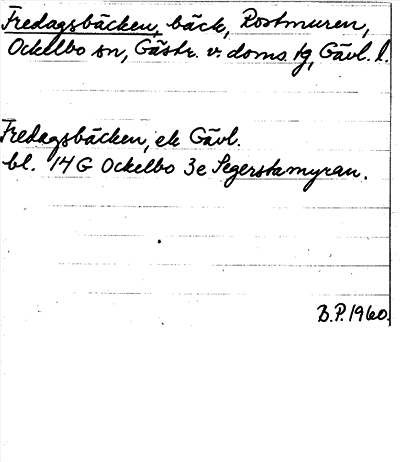 Fredagsbäcken, bäck, Rostmuren,
Ockelbo sn, Gästr. v. doms. tg, Gävl. l.
Fredagsbäcken, ek Gävl.
bl. 14 G Ockelbo 3e Segerstamyran.
B.P. 1960.